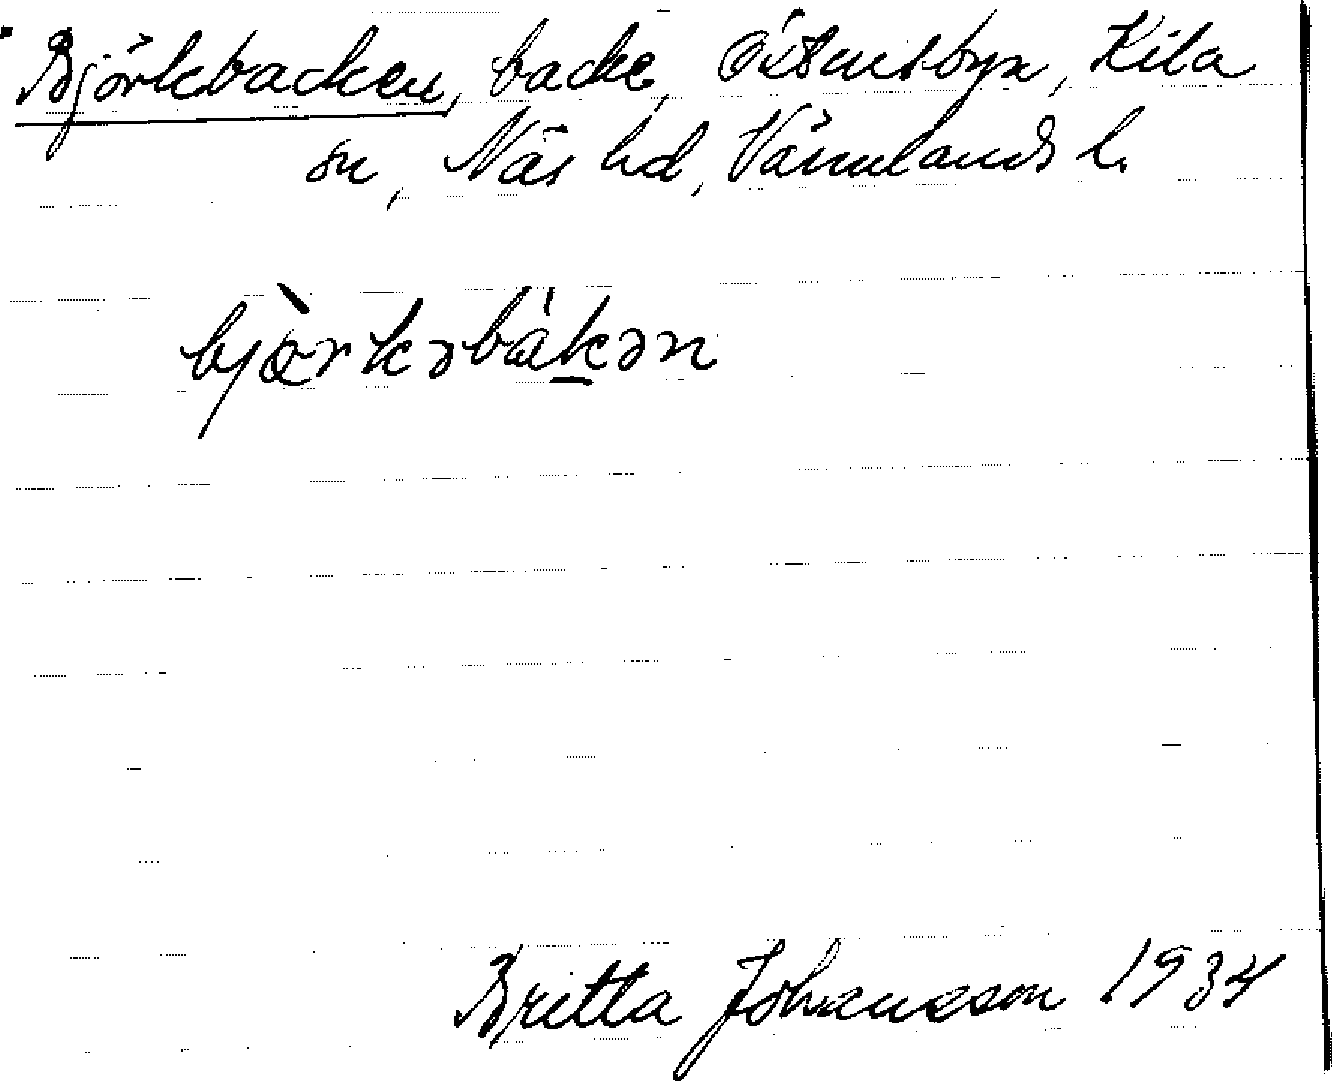 Björkbacken, backe, Östmitbyn, Kila
sn, Näs hd, Värmlands l.
bjòrkəbákən
Britta Johansson 1934